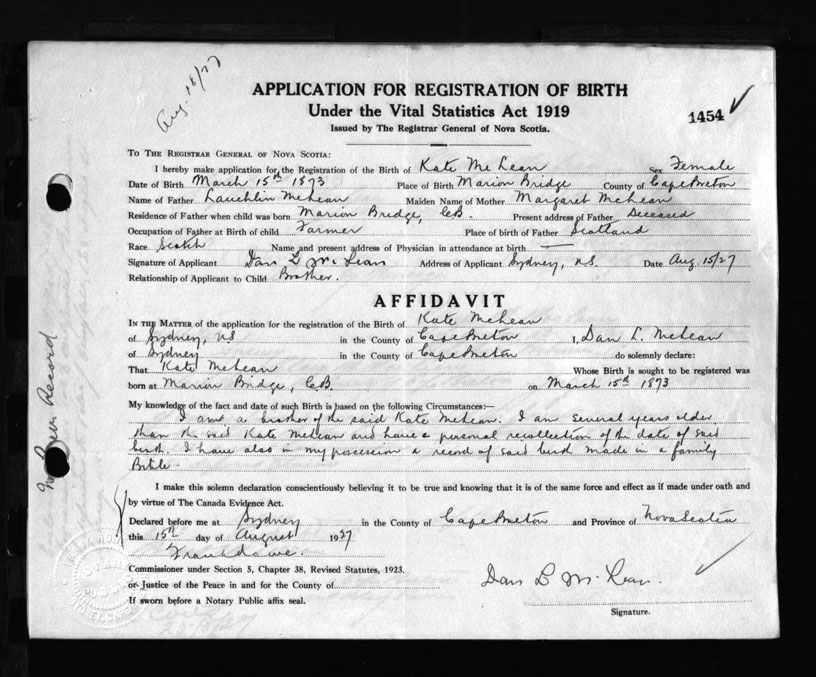 Aug. 18/27
APPLICATION FOR REGISTRATION OF BIRTH
Under the Vital Statistics Act 1919
1454 ✓
Issued by The Registrar General of Nova Scotia.
TO THE REGISTRAR GENERAL OF NOVA SCOTIA:
I hereby make application for the Registration of the Birth of Kate McLean Sex Female
Date of Birth March 15th 1873 Place of Birth Marion Bridge County of Cape Breton
Name of Father Lauchlin McLean Maiden Name of Mother Margaret McLean
Residence of Father when child was born Marion Bridge, C.B. Present address of Father Deceased
Occupation of Father at Birth of child Farmer Place of birth of Father Scotland
Race Scotch Name and present address of Physician in attendance at birth —
Signature of Applicant Dan L McLean Address of Applicant Sydney, N.S. Date Aug. 15/27
Relationship of Applicant to Child Brother.
AFFIDAVIT
IN THE MATTER of the application for the registration of the Birth of Kate McLean
of Sydney, N.S in the County of Cape Breton I, Dan L. McLean
of Sydney in the County of Cape Breton do solemnly declare:
That Kate McLean Whose Birth is sought to be registered was
born at Marion Bridge, C.B. on March 15th 1873
My knowledge of the fact and date of such Birth is based on the following Circumstances:—
I am a brother of the said Kate McLean. I am several years older
than the said Kate McLean and have a personal recollection of the date of said
birth. I have also in my possession a record of said birth made in a family
Bible.
I make this solemn declaration conscientiously believing it to be true and knowing that it is of the same force and effect as if made under oath and
by virtue of The Canada Evidence Act.
Declared before me at Sydney in the County of Cape Breton and Province of Nova Scotia
this 15th day of August 1927
Commissioner under Section 5, Chapter 38, Revised Statutes, 1923.
or Justice of the Peace in and for the County of
If sworn before a Notary Public affix seal.
Dan L McLean.
Signature.
Record